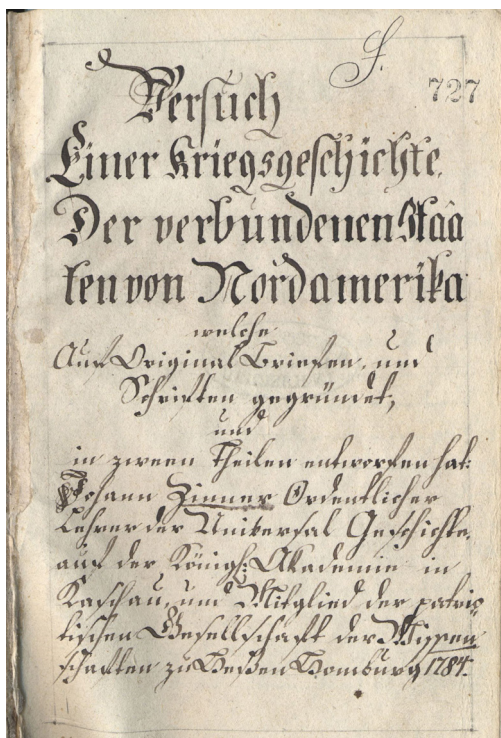 S.
727
Versuch
Einer Kriegsgeschichte
Der verbundenen Staa
ten von Nordamerika
welche
Auf Original Briefen, und
Schriften gegründet,
und
in zween Theilen entworfen hat:
Johann Zinner Ordentlicher
Lehrer der Universal Geschichte,
auf der Königl: Akademie in
Kaschau, und Mitglied der patrio=
tischen Gesellschaft der Wissen
schaften zu Hessen Homburg 1784.